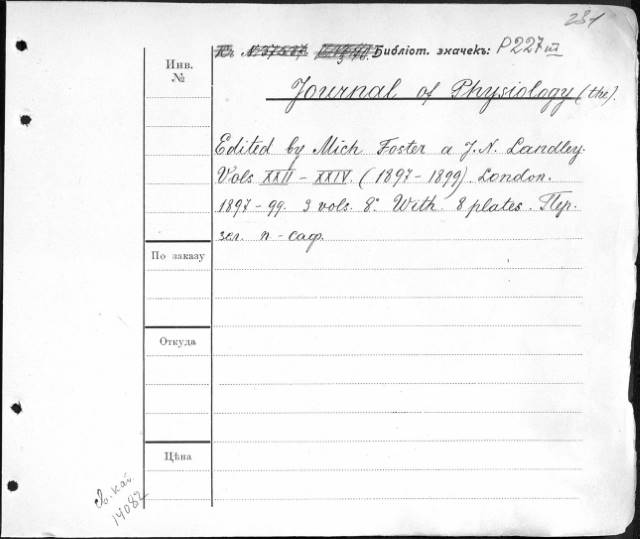 231
Библіот. значекъ: P 227 III
Инв.
№
Journal of Physiology (the).
Edited by Mich Foster a J. N. Landley.
Vols XXII – XXIV. (1897 – 1899). London.
1897 – 99. 3 vols. 8°. With 8 plates. Пер.
зел. п – саф.
По заказу
Откуда
Цѣна
14082